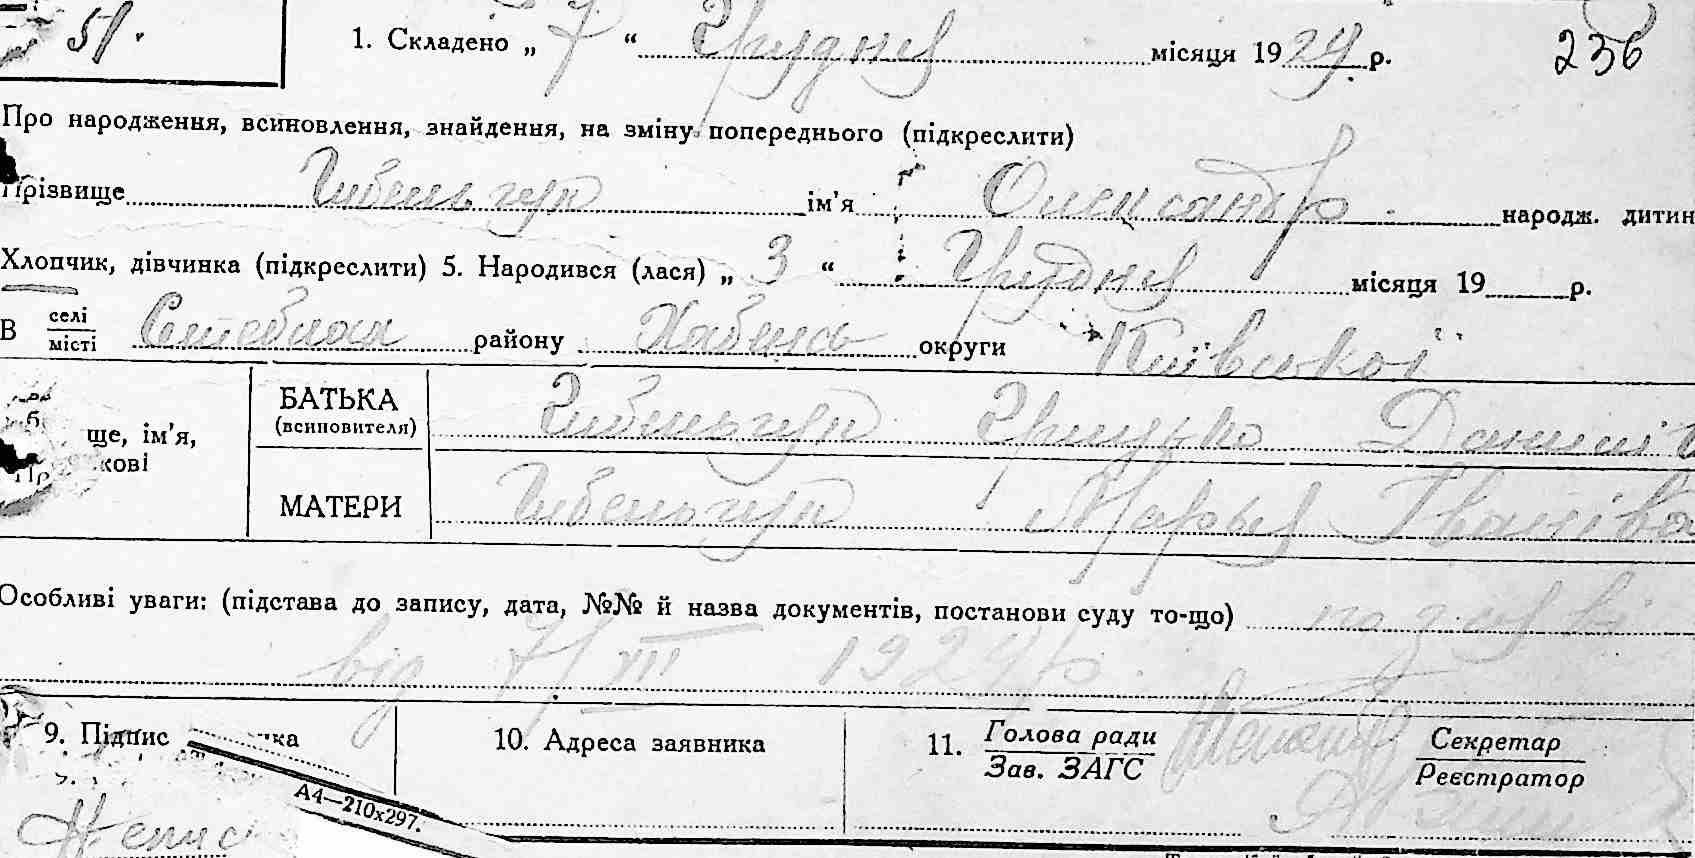 51.
1. Складено „ 7 “ Грудня місяця 1924 р. 236
Про народження, всиновлення, знайдення, на зміну попереднього (підкреслити)
Прізвище ім’я Олександр народж. дитин
Хлопчик, дівчинка (підкреслити) 5. Народився (лася) „ 3 “ Грудня місяця 19 р.
В селі
місті району Хабенсь округи Київської
ще, ім’я,
кові
БАТЬКА
(всиновителя)
Грицько Данилів
МАТЕРИ Марья Іванівна
Особливі уваги: (підстава до запису, дата, №№ й назва документів, постанови суду то-що) по заяві
від 7/XII 1924 р.
9. Підпис ка 10. Адреса заявника 11. Голова ради
Зав. ЗАГС
Секретар
Реєстратор
А4—210х297.
Непис